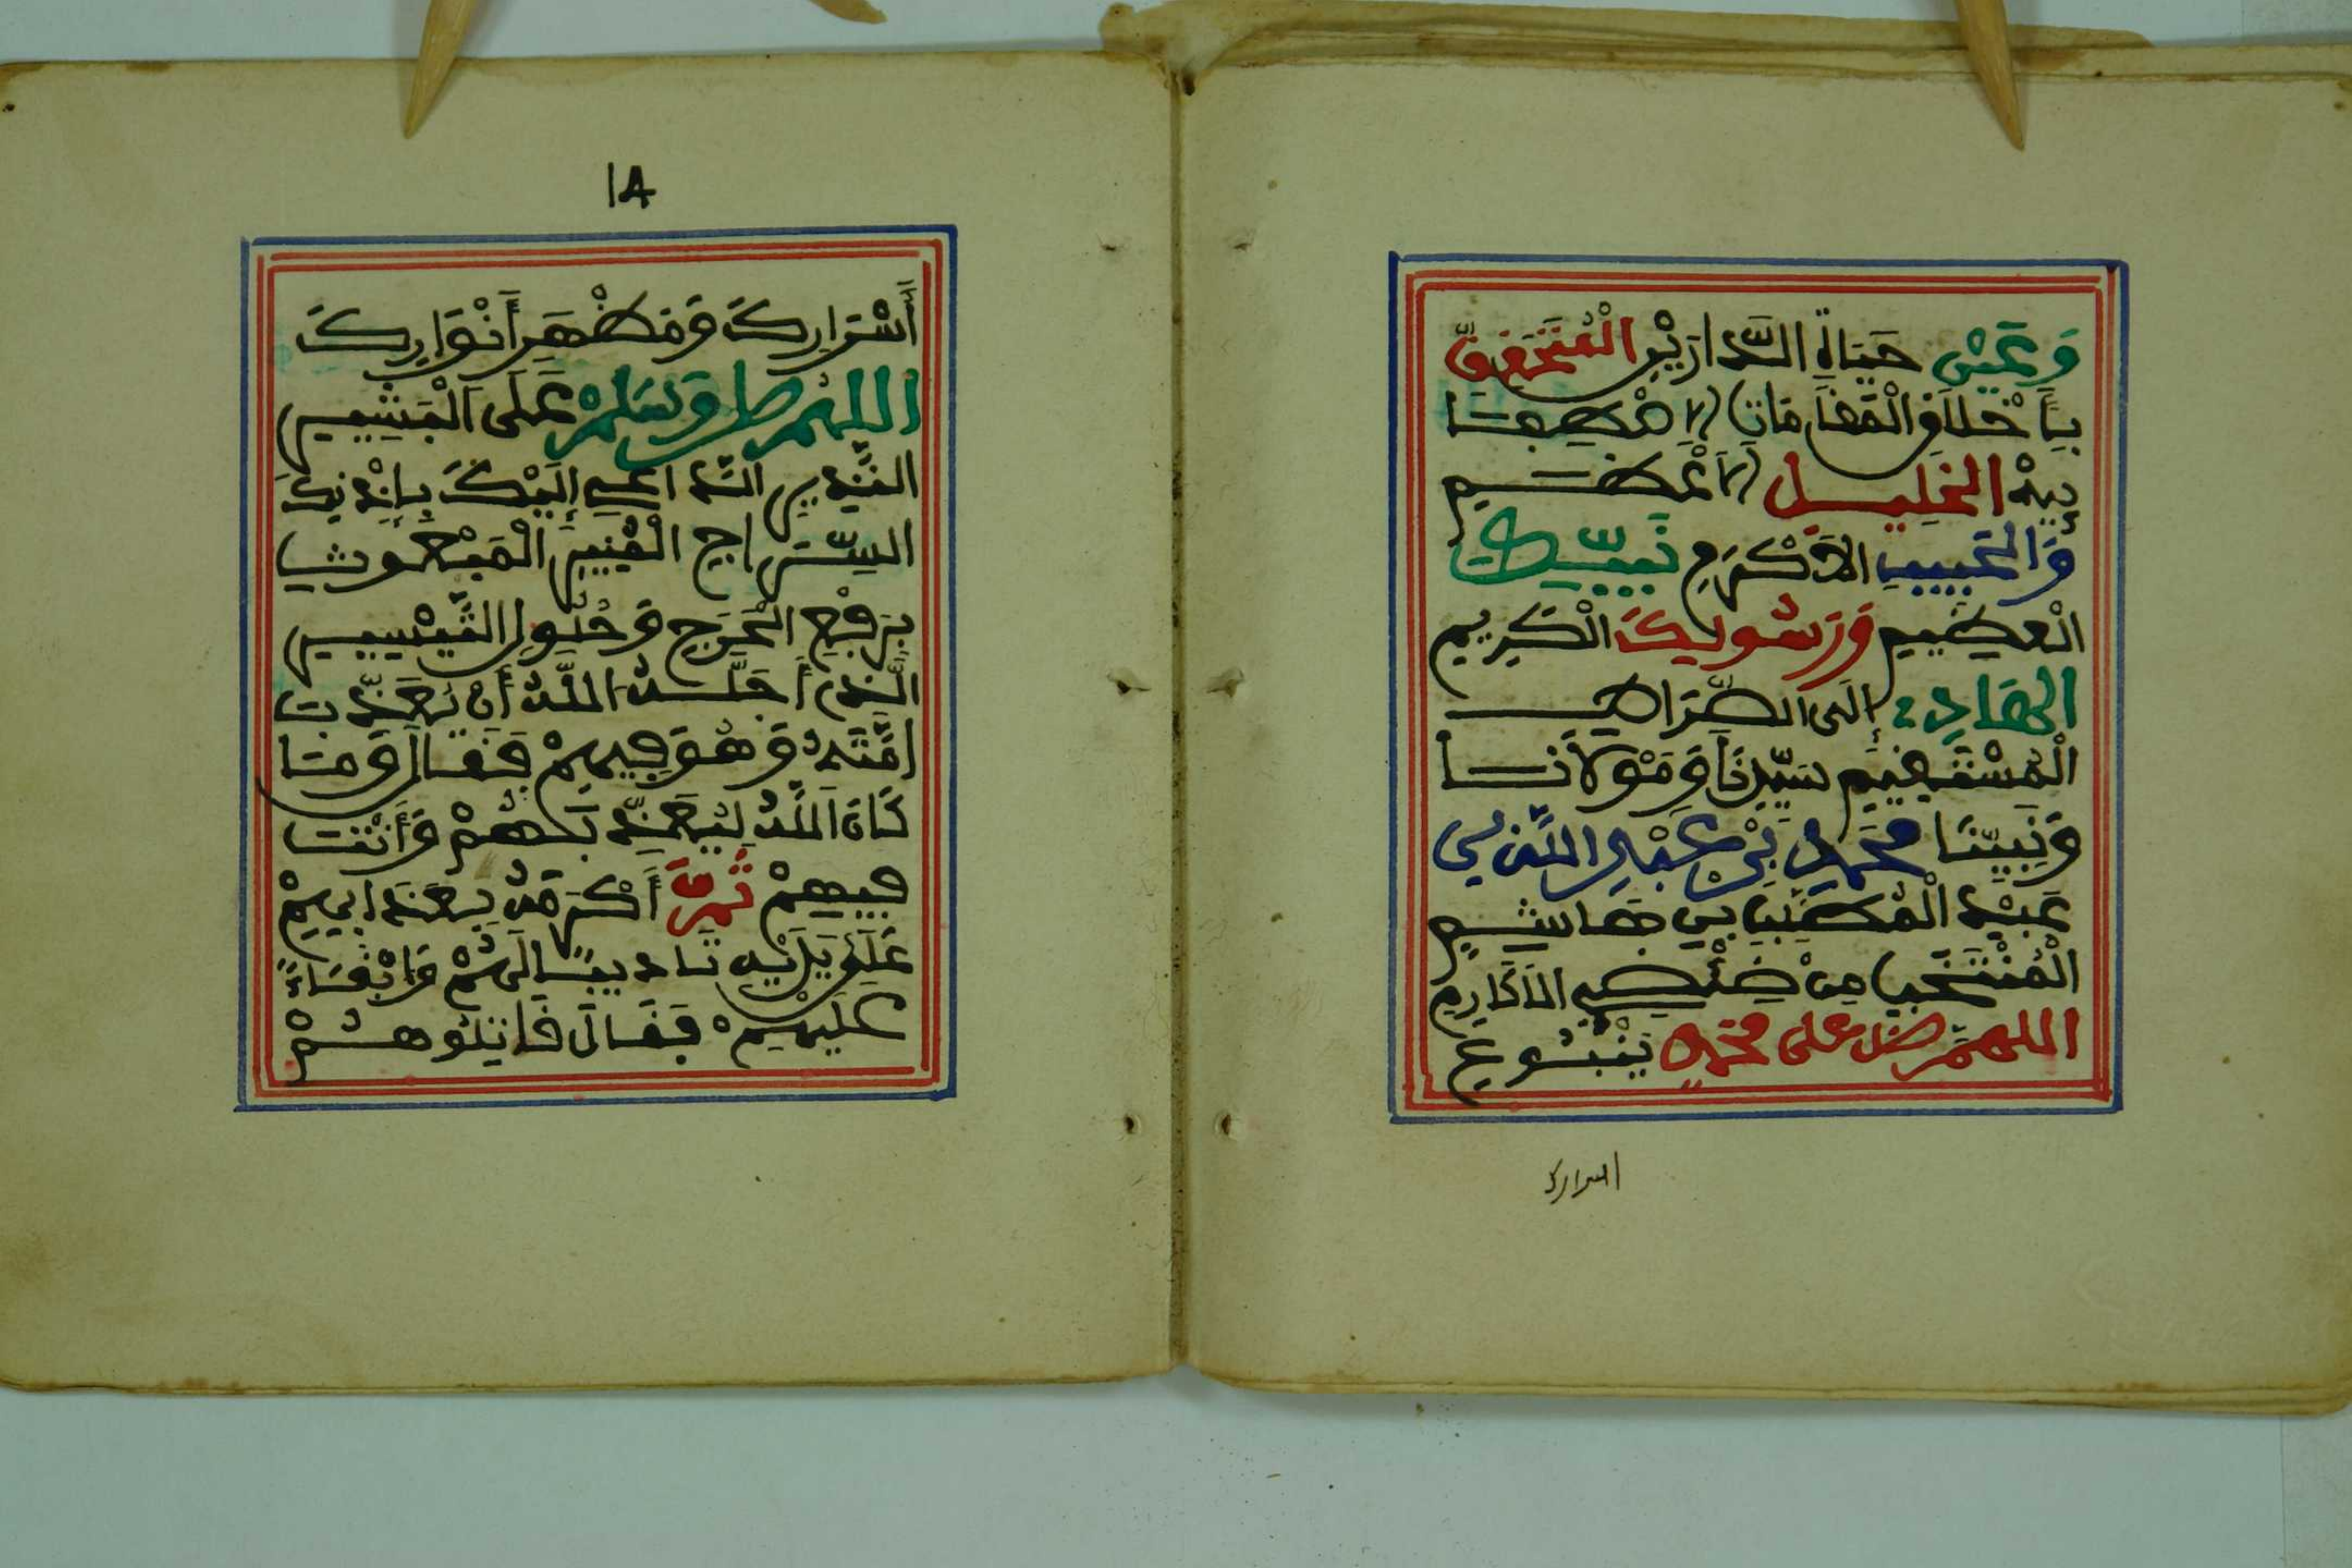 وَعَيْنِ حَيَاةِ الدَّارَيْنِ الْمُتَخَلِّقِ
بِأَخْلَاقِ الْمَقَامَاتِ الْاصْطِفَا
ئِيَّةِ الْخَلِيلِ الْأَعْظَمِ
وَالْحَبِيبِ الْأَكْرَمِ نَبِيِّكَ
الْعَظِيمِ وَرَسُولِكَ الْكَرِيمِ
الْهَادِي إِلَى الصِّرَاطِ
الْمُسْتَقِيمِ سَيِّدِنَا وَمَوْلَانَا
وَنَبِيِّنَا مُحَمَّدِ بْنِ عَبْدِ اللَّهِ بْنِ
عَبْدِ الْمُطَّلِبِ بْنِ هَاشِمٍ
الْمُنْتَخَبِ مِنْ ضِئْضِئِ الْأَكَارِمِ
اللهم صل على محمد يَنْبُوعِ
اسرارك
١٨
أَسْرَارِكَ وَمَظْهَرِ أَنْوَارِكَ
اللهم صل وسلم عَلَى الْبَشِيرِ
النَّذِيرِ الدَّاعِي إِلَيْكَ بِإِذْنِكَ
السِّرَاجِ الْمُنِيرِ الْمَبْعُوثِ
بِرَفْعِ الْحَرَجِ وَحُلُولِ التَّيْسِيرِ
الَّذِي أَجَلَّهُ اللَّهُ أَنْ يُعَذِّبَ
أُمَّتَهُ وَهُوَ فِيهِمْ فَقَالَ وَمَا
كَانَ اللَّهُ لِيُعَذِّبَهُمْ وَأَنْتَ
فِيهِمْ ثُمَّ أَكْرَمَهُ بِعَذَابِهِمْ
عَلَى يَدَيْهِ تَادِيبًا لَهُمْ وَإِبْقَاءً
عَلَيْهِمْ فَقَالَ قَاتِلُوهُمْ